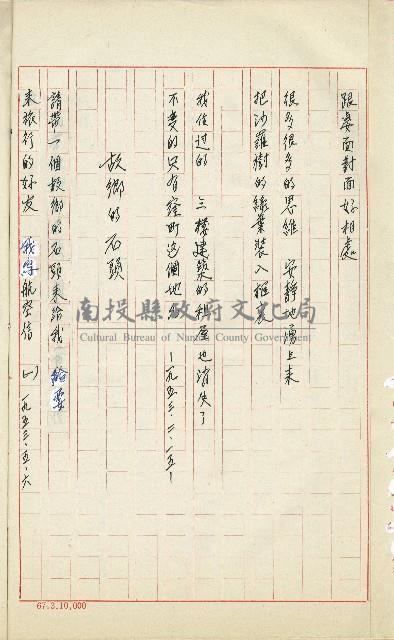 跟妻面對面好相處
很多很多的思維 安靜地湧上来
把沙羅樹的綠葉裝入框裏
我住过的 三楼建築的租屋也消失了
不变的只有窪町這個地名 —一九五三・二・一五—
故鄉的石頭
請帶一個故鄉的石頭来給我 給要
来旅行的好友 我寫航空信 (一) 一九五三・五・六
南投縣政府文化局
Cultural Bureau of Nantou County Government
67.3.10,000